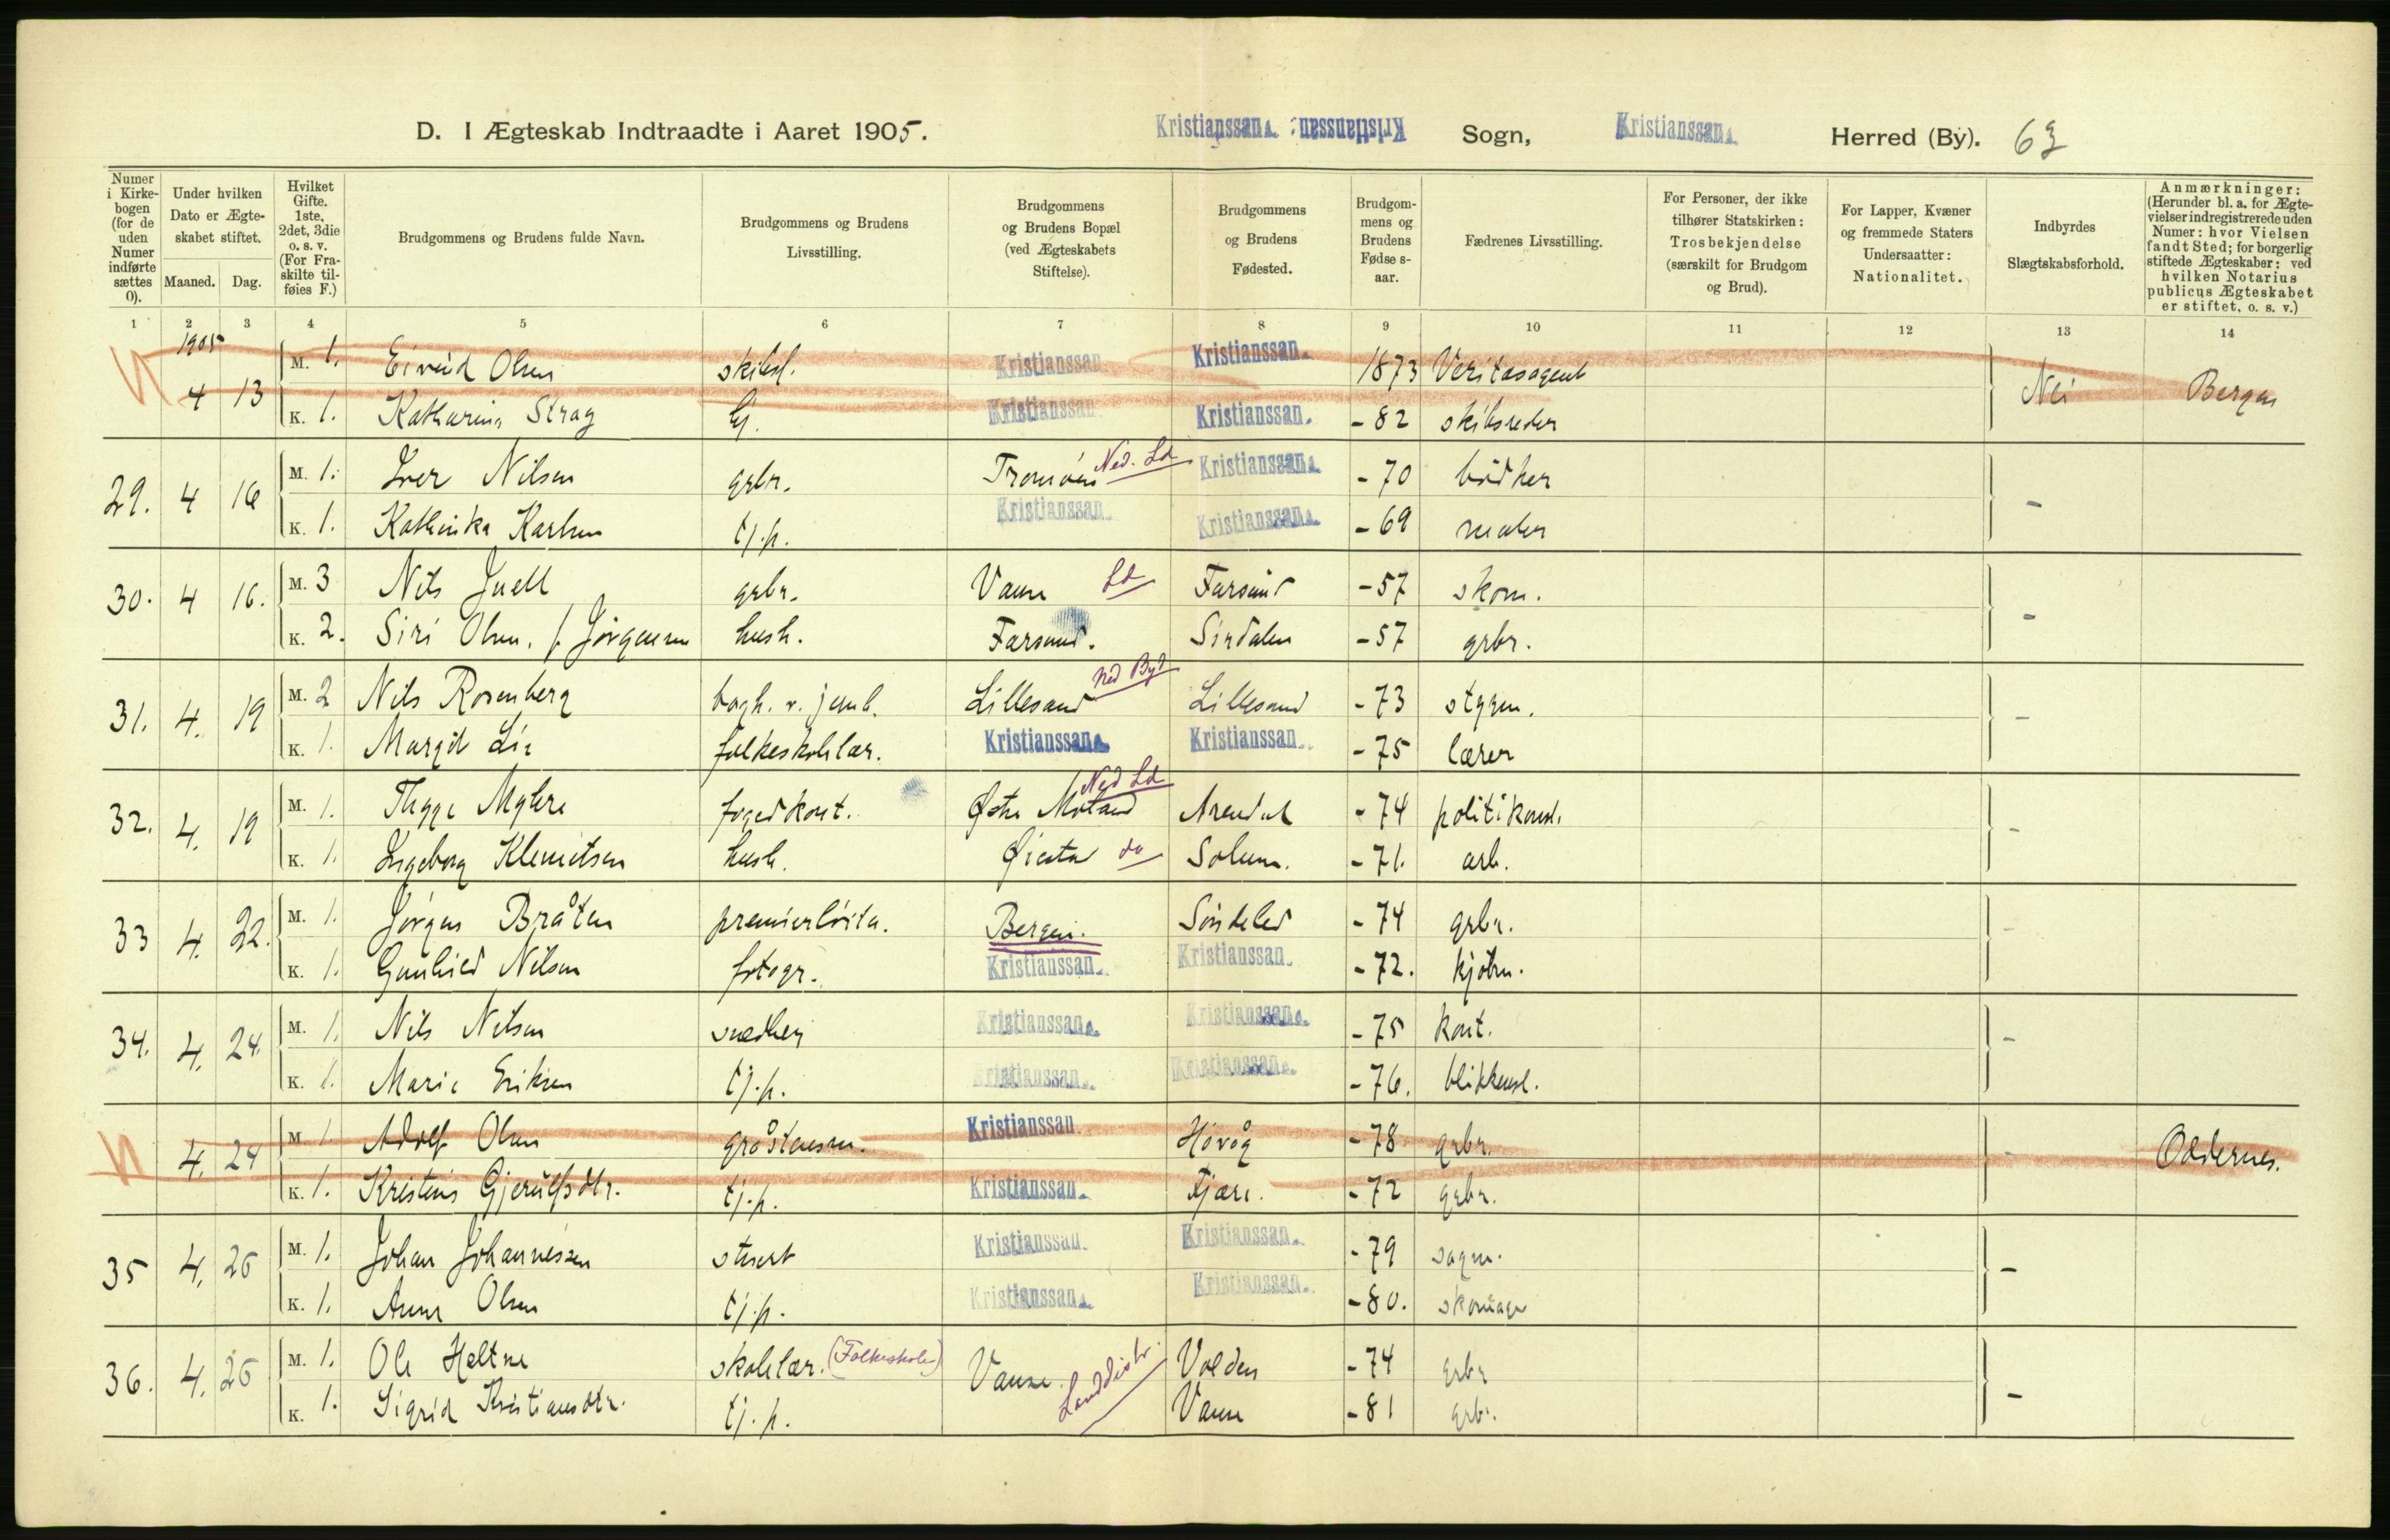 D. I Ægteskab Indtraadte i Aaret 1905. Kristianssan Kristianssan Sogn, Kristianssan Herred (By). 63
Numer i Kirkebogen (for de uden Numer indførte sættes 0).
Under hvilken Dato er Ægteskabet stiftet.
Maaned. Dag.
Hvilket Gifte. 1ste, 2det, 3die o. s. v. (For Fraskilte tilføies F.)
Brudgommens og Brudens fulde Navn.
Brudgommens og Brudens Livsstilling.
Brudgommens og Brudens Bopæl (ved Ægteskabets Stiftelse).
Brudgommens og Brudens Fødested.
Brudgommens og Brudens Fødselsaar.
Fædrenes Livsstilling.
For Personer, der ikke tilhører Statskirken: Trosbekjendelse (særskilt for Brudgom og Brud).
For Lapper, Kvæner og fremmede Staters Undersaatter: Nationalitet.
Indbyrdes Slægtskabsforhold.
Anmærkninger: (Herunder bl. a. for Ægtevielser indregistrerede uden Numer: hvor Vielsen fandt Sted; for borgerlig stiftede Ægteskaber: ved hvilken Notarius publicus Ægteskabet er stiftet, o. s. v.)
1 2 3 4 5 6 7 8 9 10 11 12 13 14
1905
4 13 M. 1. Eivind Olsen skibsf. Kristianssan Kristianssan. 1873 Veritasagent Nei Bergen
K. 1. Katharina Stray Kristianssan. Kristianssan. -82 skibsreder
29. 4 16 M. 1. Iver Nilsen grbr. Tromøen Ned. Ld Kristianssan -70 bødker -
K. 1. Kathinka Karlsen tj.p. Kristianssan. Kristianssan -69 maler
30. 4 16. M. 3 Nils Juell grbr. Vanse Ld Farsund -57 skom. -
K. 2. Siri Olsen, f. Jørgensen hush. Farsund. Sirdalen -57 grbr.
31. 4. 19 M. 2 Nils Rosenberg bogh. v. jernb. Lillesand Ned Byd Lillesand -73 styrm. -
K. 1. Margit Lie folkeskolelær. Kristianssan Kristianssan. -75 lærer
32. 4. 19 M. 1. Mykre Østre Moland Ned Ld Arendal -74 politikonst. -
K. 1. Ingeborg Klemetsen hush. Øiestad do Solum. -71. arb.
33 4. 22. M. 1. Jørgen Bråten premierløitn. Bergen. Søndeled -74 grbr. -
K. 1. Gunhild Nilsen fotogr. Kristianssan. Kristianssan. -72. kjøbm.
34. 4. 24. M. 1. Nils Nilsen snedker Kristianssan Kristianssan -75 kont. -
K. 1. Marie Eriksen tj.p. Kristianssan. Kristianssan -76. blikkensl.
4. 24 M. 1 Adolf Olsen gråstensm. Kristianssan. Høvåg -78 grbr. - Oddernes.
K. 1. Kristine Gjerulfsdtr. tj.p. Kristianssan. Fjære. -72 grbr.
35 4. 26 M. 1. Johan Johannessen stuert Kristianssan. Kristianssan. -79 sagm. -
K. 1. Anna Olsen tj.p. Kristianssan Kristianssan. -80. skomager
36. 4. 26 M. 1. Ole Heltne skolelær. (Folkeskole) Vanse. Landdistr. Volden -74 grbr -
K. 1. Sigrid Kristiansdtr. tj.p. Vanse -81 grbr.